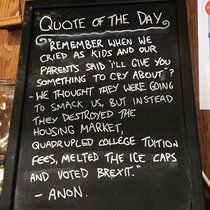 QUOTE OF THE DAY
"REMEMBER WHEN WE
CRIED AS KIDS AND OUR
PARENTS SAID "I'LL GIVE YOU
SOMETHING TO CRY ABOUT"?
- WE THOUGHT THEY WERE GOING
TO SMACK US, BUT INSTEAD
THEY DESTROYED THE
HOUSING MARKET,
QUADRUPLED COLLEGE TUITION
FEES, MELTED THE ICE CAPS
AND VOTED BREXIT."
- ANON.